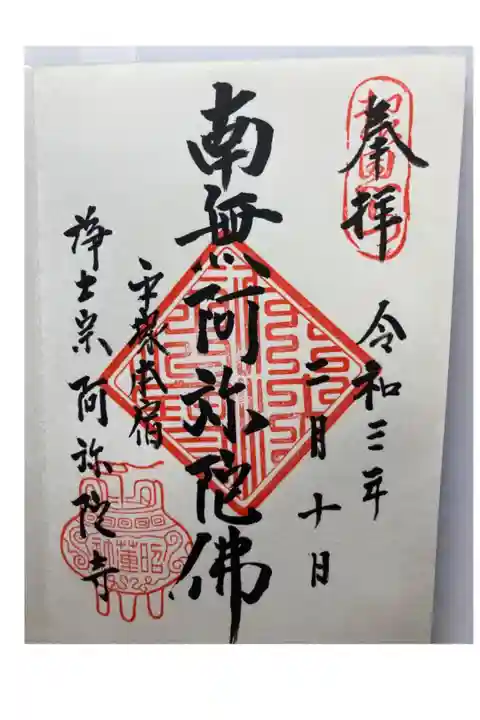 奉拝
令和三年
二月十日
南無阿弥陀佛
平塚本宿
浄土宗阿弥陀寺